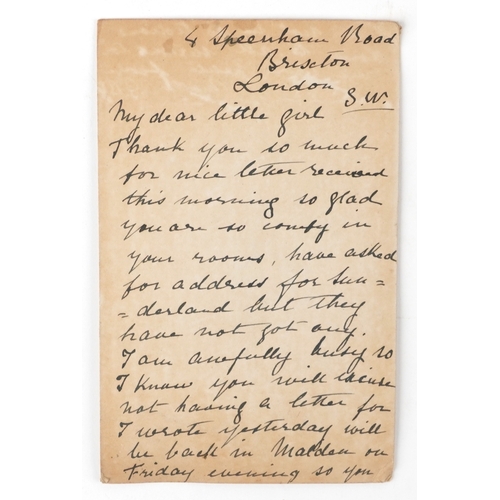 4 Speenham Road
Brixton
London
S.W.
My dear little girl
Thank you so much
for nice letter received
this morning so glad
you are so comfy in
your rooms, have asked
for address for Sun=
=derland but they
have not got any.
I am awefully busy so
I know you will excuse
not having a letter for
I wrote yesterday will
be back in Malden on
Friday evening so you